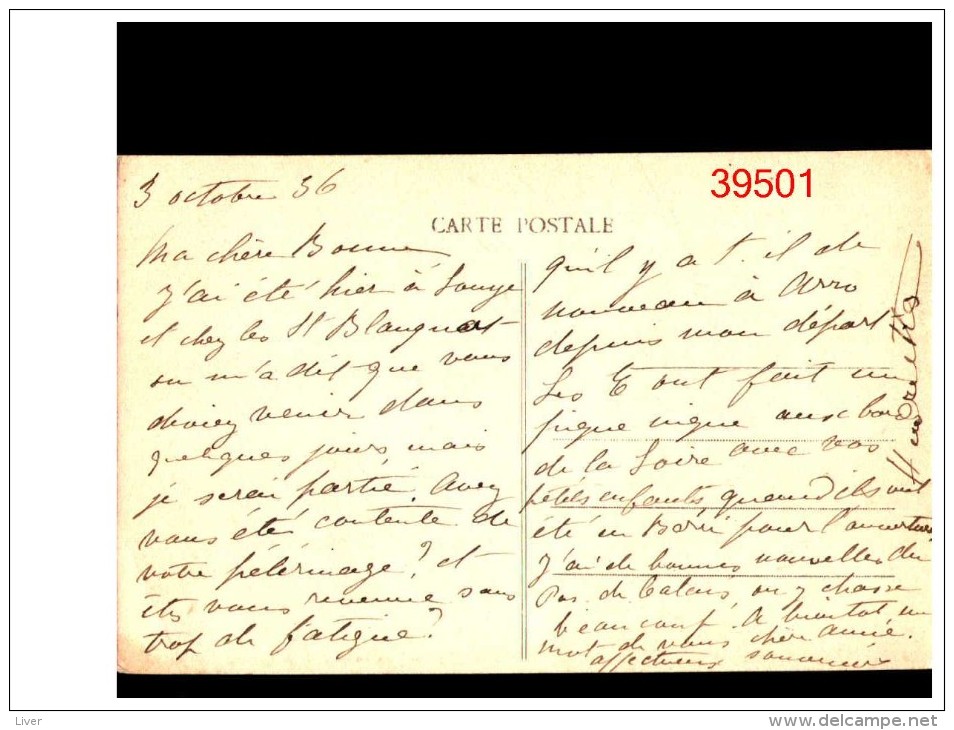 3 octobre 36
39501
CARTE POSTALE
Ma chère Bonne
j'ai été hier à Souye
et chez les St Blanquat
on m'a dit que vous
deviez venir dans
quelques jours mais
je serai partie. Avez
vous été contente de
votre pélerinage? et
êtes vous revenue sans
trop de fatigue?
qu'il y a t. il de
nouveau à Arro
depuis mon départ
Les ont fait un
pique nique aux bords
de la Loire avec vos
petits enfants quand ils ont
été en Berri pour l'ouverture
J'ai de bonnes nouvelles du
Pas de Calais, on y chasse
beaucoup. A bientot un
mot de vous chère amie.
affectueux souvenir
Liver
www.delcampe.net